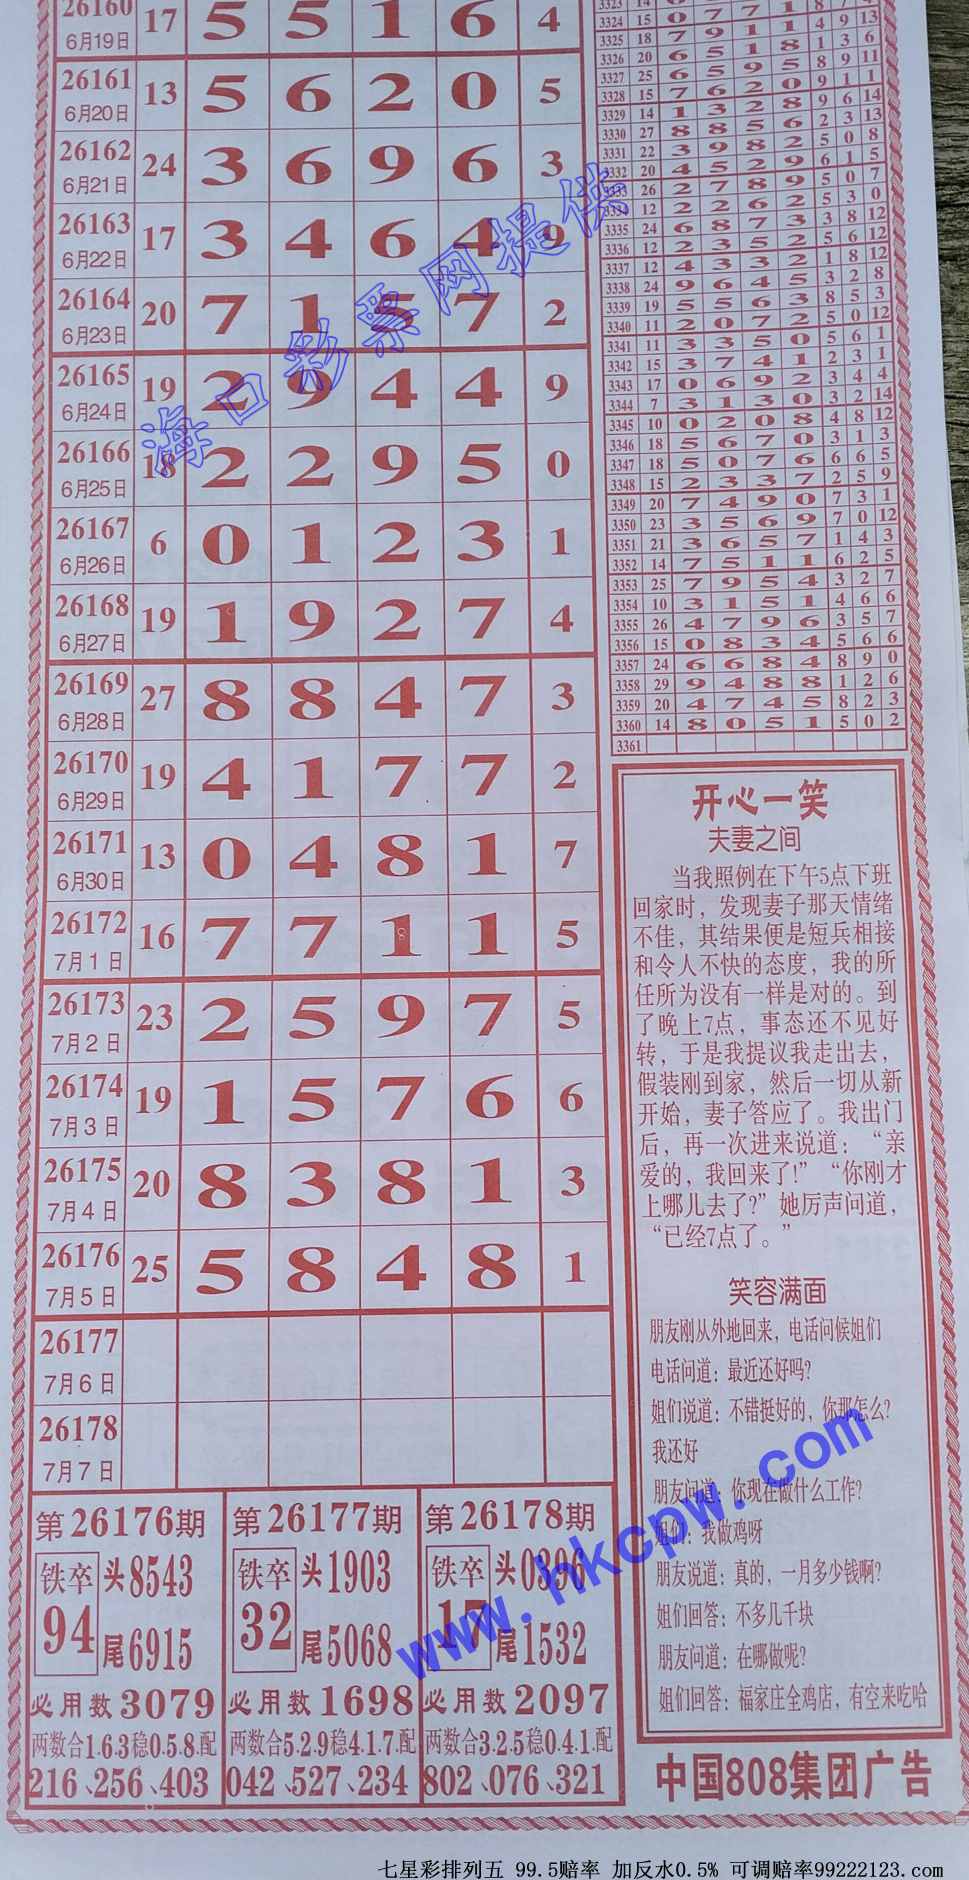 26160 17 5 5 1 6 4
6月19日
26161 13 5 6 2 0 5
6月20日
26162 24 3 6 9 6 3
6月21日
26163 17 3 4 6 4 9
6月22日
26164 20 7 1 5 7 2
6月23日
26165 19 2 9 4 4 9
6月24日
26166 18 2 2 9 5 0
6月25日
26167 6 0 1 2 3 1
6月26日
26168 19 1 9 2 7 4
6月27日
26169 27 8 8 4 7 3
6月28日
26170 19 4 1 7 7 2
6月29日
26171 13 0 4 8 1 7
6月30日
26172 16 7 7 1 1 5
7月1日
26173 23 2 5 9 7 5
7月2日
26174 19 1 5 7 6 6
7月3日
26175 20 8 3 8 1 3
7月4日
26176 25 5 8 4 8 1
7月5日
26177
7月6日
26178
7月7日
第26176期
铁卒 头8543
94 尾6915
必用数3079
两数合1.6.3稳0.5.8.配
216、256、403
第26177期
铁卒 头1903
32 尾5068
必用数1698
两数合5.2.9稳4.1.7.配
042、527、234
第26178期
铁卒 头0396
17 尾1532
必用数2097
两数合3.2.5稳0.4.1.配
802、076、321
3324 15 0 7 7 1 4 9 13
3325 18 7 9 1 1 1 3 6
3326 20 6 5 1 8 8 9 11
3327 25 6 5 9 5 9 1 1
3328 15 7 6 2 0 9 6 14
3329 14 1 3 2 8 2 3 13
3330 27 8 8 5 6 5 0 8
3331 22 3 9 8 2 6 1 5
3332 20 4 5 2 9 5 0 7
3333 26 2 7 8 9 5 3 0
3334 12 2 2 6 2 3 8 12
3335 24 6 8 7 3 5 6 12
3336 12 2 3 5 2 1 8 12
3337 12 4 3 3 2 3 2 8
3338 24 9 6 4 5 8 5 3
3339 19 5 5 6 3 5 0 12
3340 11 2 0 7 2 5 6 1
3341 11 3 3 5 0 2 3 1
3342 15 3 7 4 1 3 4 4
3343 17 0 6 9 2 3 2 14
3344 7 3 1 3 0 4 8 12
3345 10 0 2 0 8 3 1 3
3346 18 5 6 7 0 6 6 5
3347 18 5 0 7 6 2 5 9
3348 15 2 3 3 7 7 3 1
3349 20 7 4 9 0 7 0 12
3350 23 3 5 6 9 1 4 3
3351 21 3 6 5 7 6 2 5
3352 14 7 5 1 1 3 2 7
3353 25 7 9 5 4 4 6 6
3354 10 3 1 5 1 3 5 7
3355 26 4 7 9 6 5 6 6
3356 15 0 8 3 4 8 9 0
3357 24 6 6 8 4 1 2 6
3358 29 9 4 8 8 8 2 3
3359 20 4 7 4 5 5 0 2
3360 14 8 0 5 1
3361
开心一笑
夫妻之间
当我照例在下午5点下班
回家时，发现妻子那天情绪
不佳，其结果便是短兵相接
和令人不快的态度，我的所
任所为没有一样是对的。到
了晚上7点，事态还不见好
转，于是我提议我走出去，
假装刚到家，然后一切从新
开始，妻子答应了。我出门
后，再一次进来说道：“亲
爱的，我回来了!”“你刚才
上哪儿去了?”她厉声问道，
“已经7点了。”
笑容满面
朋友刚从外地回来，电话问候姐们
电话问道：最近还好吗?
姐们说道：不错挺好的，你那怎么?
我还好
朋友问道：你现在做什么工作?
姐们：我做鸡呀
朋友说道：真的，一月多少钱啊?
姐们回答：不多几千块
朋友问道：在哪做呢?
姐们回答：福家庄全鸡店，有空来吃哈
中国808集团广告
海口彩票网提供
www.hkcpw.com
七星彩排列五 99.5赔率 加反水0.5% 可调赔率99222123.com